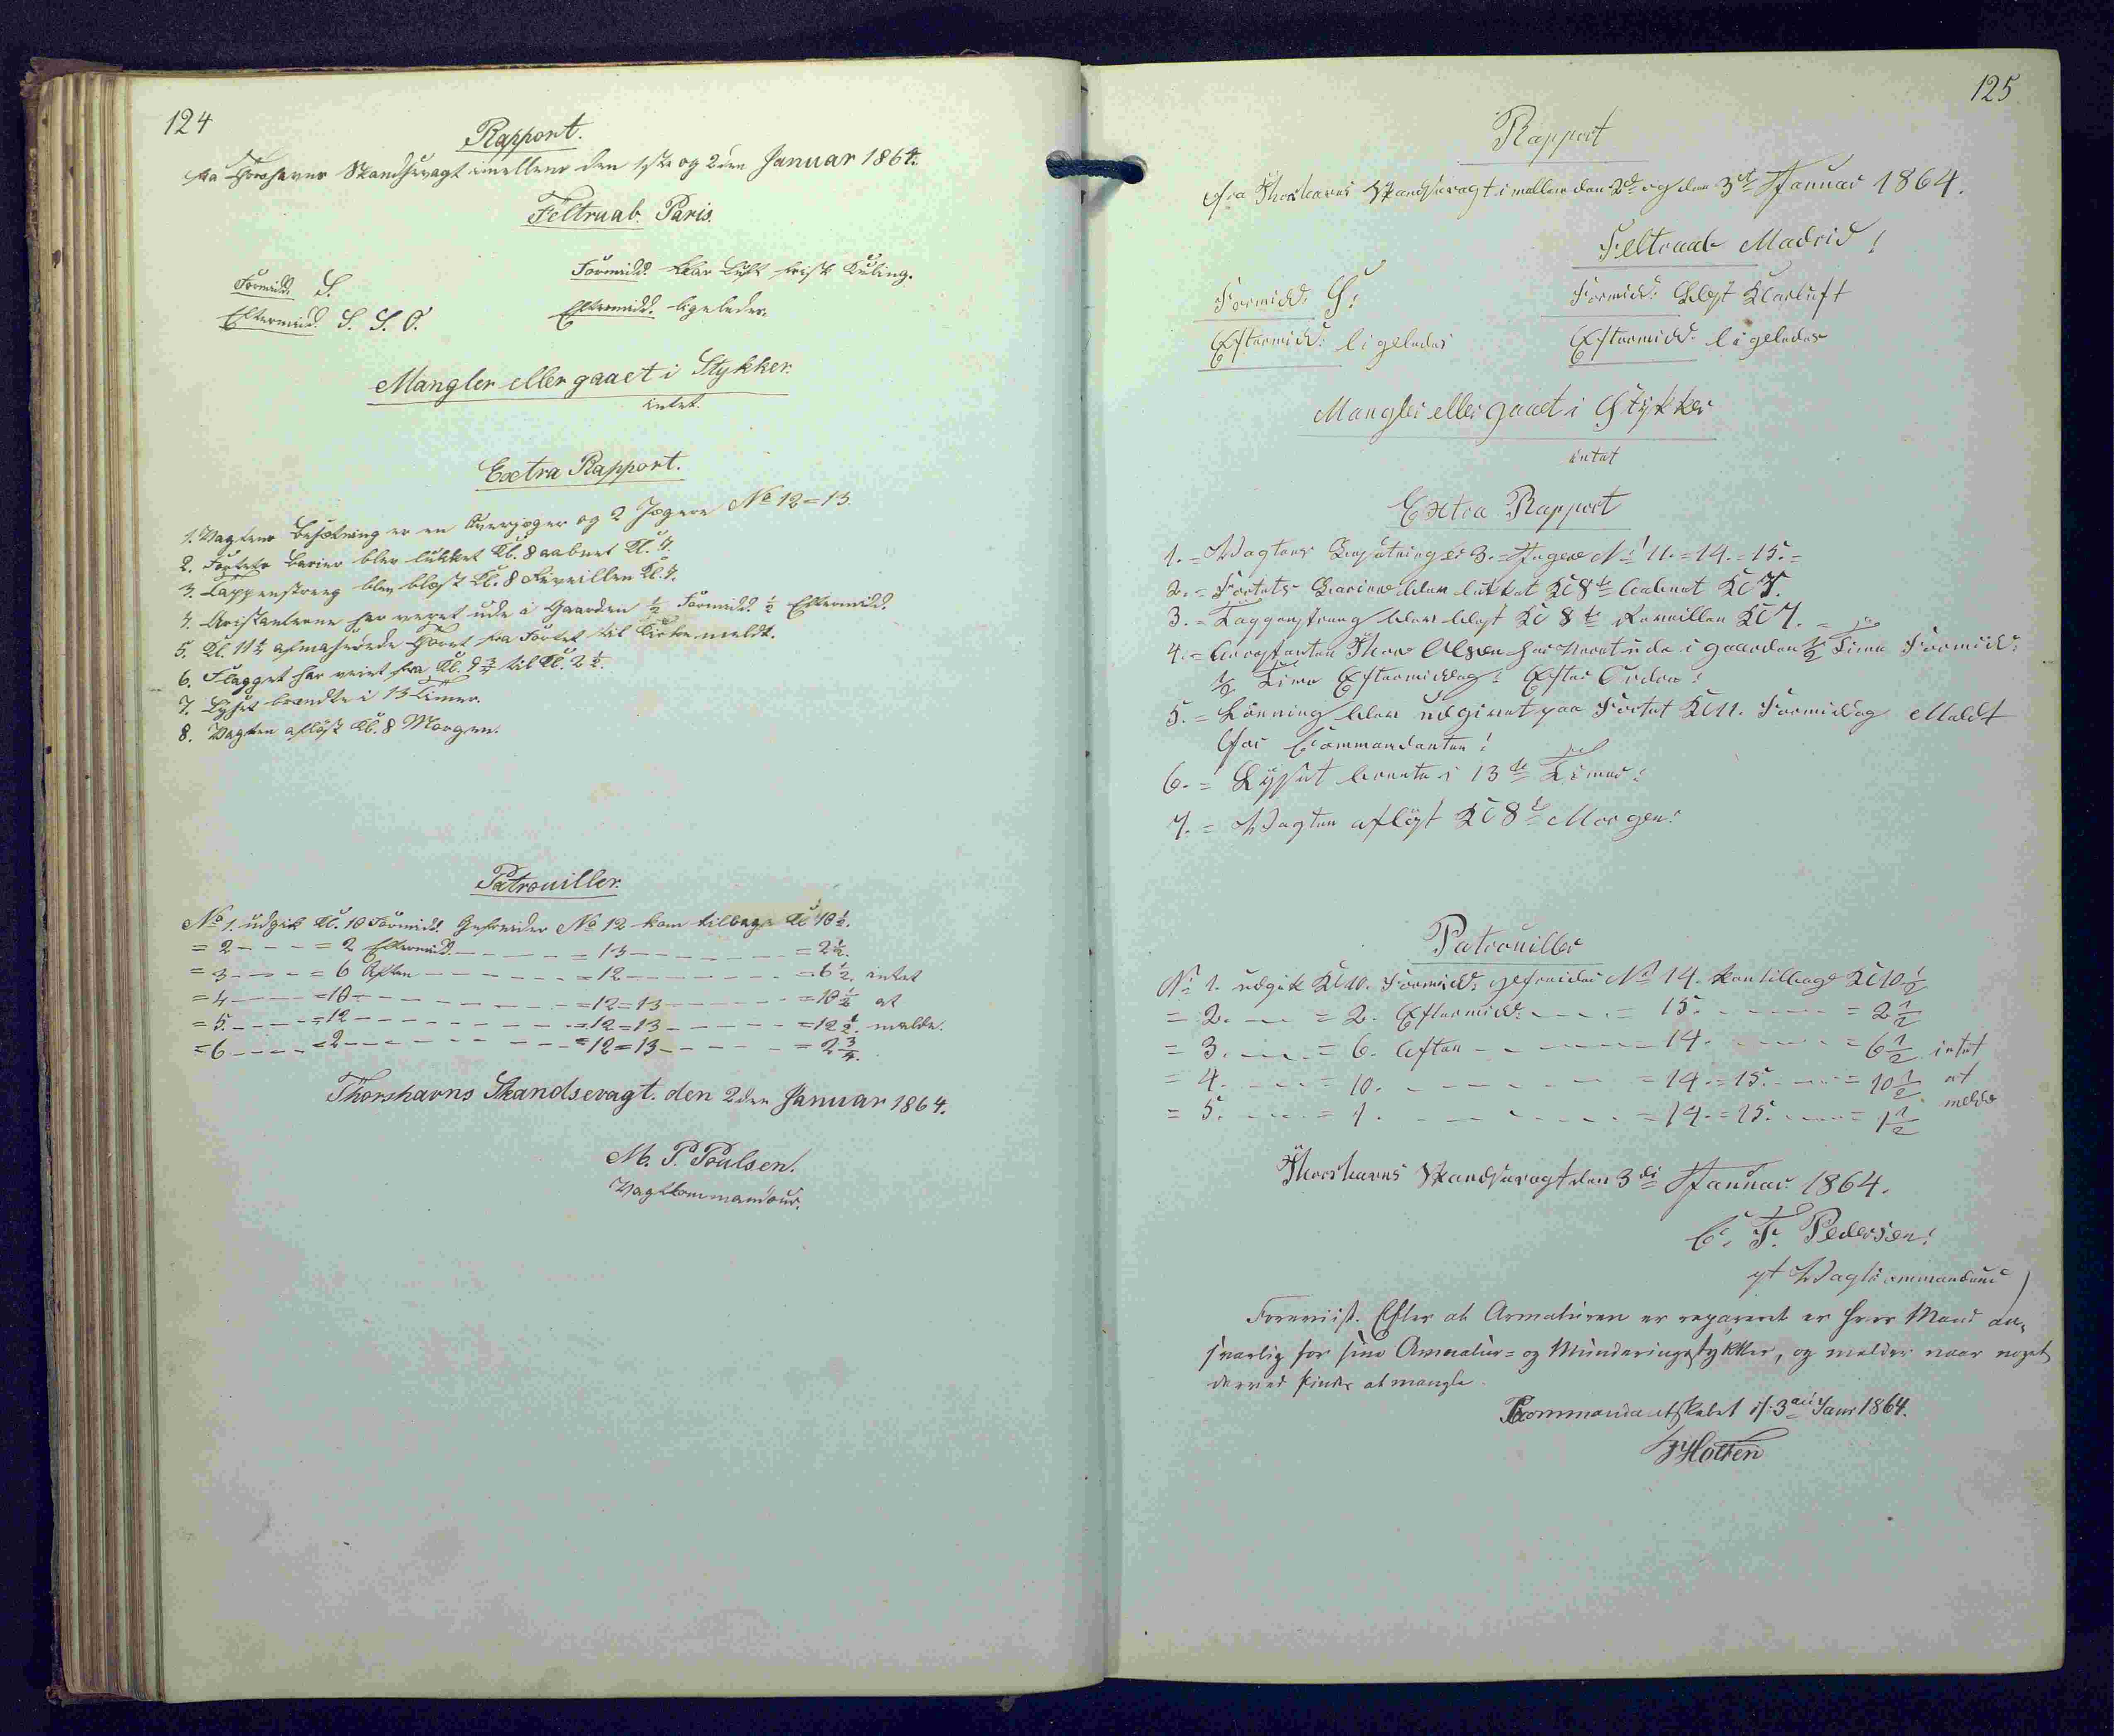 124
Rapport.
fra Thorshavns Skandsevagt imellem den 1ste og 2den Januar 1864.
Feltraab Paris.
Formidd. S.
Formidd. klar Luft frisk Kuling.
Eftermidd. S. S. O.
Eftermidd. ligeledes.
Mangler eller gaaet i Stykker.
intet.
Extra Rapport.
1. Vagtens Besætning er en Overjæger og 2 Jægere No 12 = 13.
2. Fortets Barier blev lukket Kl. 8 aabnet Kl. 7.
3. Tappenstreeg blev blæst Kl. 8 Reveillen Kl. 7.
4. Aristanterne har været ude i Gaarden ½ Formidd. ½ Eftermidd.
5. Kl. 11½ afmascherede Corpset fra Fortet til Kirke meldt.
6. Flagget har veiet fra Kl. 9¾ til Kl. 2½.
7. Lyset brændte i 13 Timer.
8. Vagten afløst Kl. 8 Morgen.
Patrouiller.
No 1. udgik Kl. 10 Formidd. Gefreider No 12 kom tilbage Kl 10½.
= 2 - - - = 2 Eftermidd. - - - - = 13 - - - - - = 2½.
= 3 - - - = 6 Aften - - - - - = 12 - - - - - = 6½. intet
= 4 - - - = 10 - - - - - - = 12 = 13 - - - - = 10½ at
= 5. - - - = 12 - - - - - - = 12 = 13 - - - - = 12½. melde.
= 6 - - - = 2 - - - - - - = 12 = 13 - - - - = 2¾.
Thorshavns Skandsevagt. den 2den Januar 1864.
M. P. Poulsen.
Vagtkommandeur.
125
Rapport
fra Thorshavns Skandsevagt imellem den 2d og den 3di Januar 1864.
Feltraab Madrid!
Formidd: S:
Formidd: Blest Klarluft
Eftermidd: ligeledes
Eftermidd: ligeledes
Mangler eller gaaet i Stykker
intet
Extra Rapport
1. = Vagtens Besætning er 3. = Jægere No 11. = 14. = 15. =
2. = Fortets Bariere blev lukket Kl 8te aabnet Kl 7.
3. = Tappenstreeg blev blest Kl 8te Reveillen Kl 7. =
4. = Arrestanten Thor Olsen har Veret ude i gaarden ½ Time Formid:
½ Time Eftermiddag: Efter Ordre!
5. = Lønning blev udgivet paa Fortet Kl 11. Formiddag Meldt
for Commandanten!
6. = Lysset brente i 13de Timer:
7. = Vagten afløst Kl 8te Morgen:
Patrouiller
No 1. udgik Kl 10. Formidd: gefreider No 14. kom tilbage Kl 10½
= 2. - - = 2. Eftermidd: - - - = 15. - - - = 2½
= 3. - - - = 6. Aften - - - - 14. - - - = 6½ intet
= 4. - - - = 10. - - - - - = 14. = 15. - - - = 10½ at
= 5. - - - = 1. - - - - - = 14. = 15. - - - = 1½ melde
Thorshavns Skandsevagt den 3di Januar 1864.
C. F. Pedersen!
Vagtkommandeur
Foreviist. Efter at Armaturen er repareret er hver Mand an-
svarlig for sine Armatur- og Munderingsstykker, og melder naar noget
derved findes at mangle.
Kommandantskabet d: 3die Januar 1864.
Holten